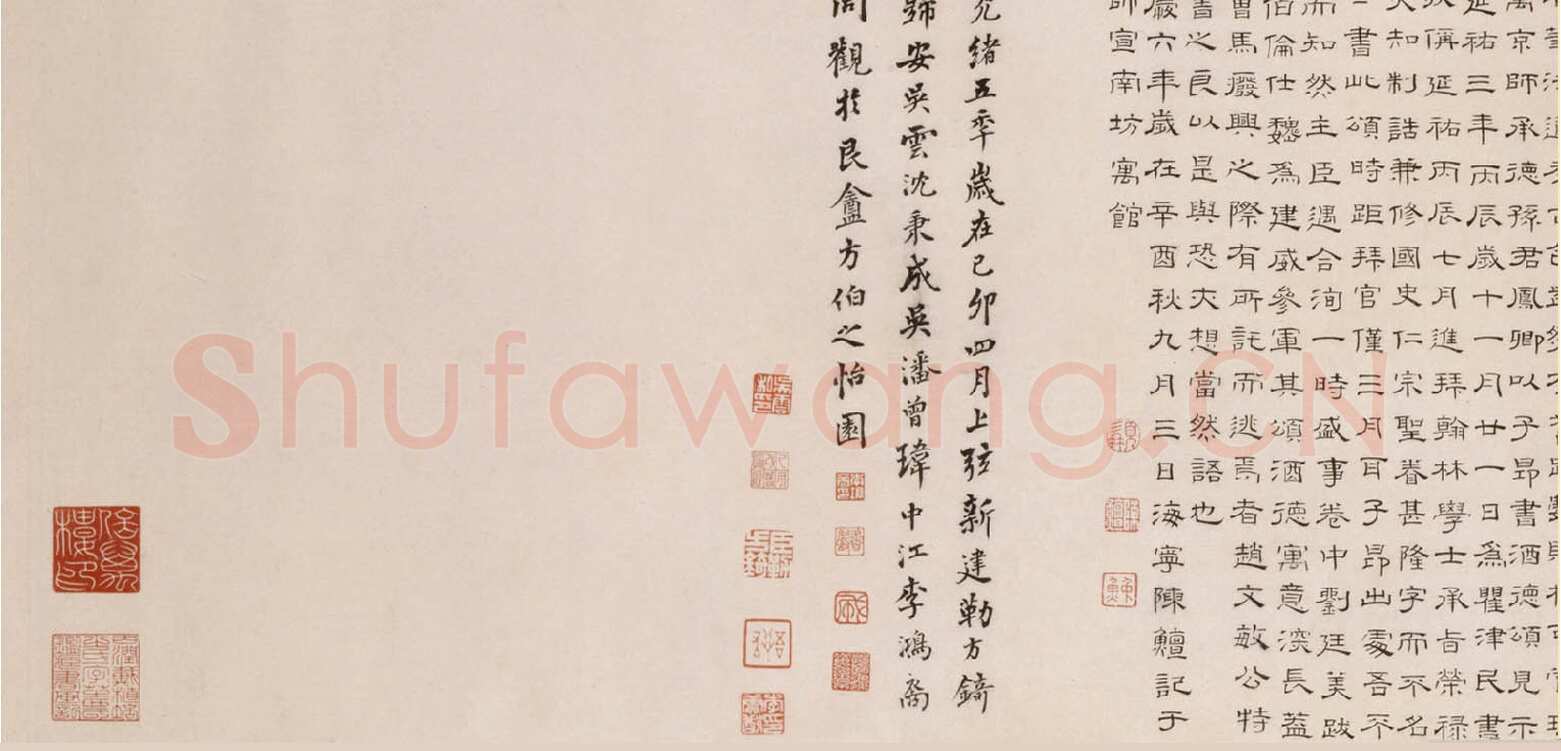 萬京師承德孫君鳳卿以子昂書酒德頌見示
延祐三年丙辰歲十一月廿一日為瞿津民書
偁延祐丙辰七月進拜翰林學士承旨榮祿
大知制誥兼修國史仁宗聖眷甚隆字而不名
書此頌時距拜官僅三月耳子昂出處吾不
而知然主臣遇合洵一時盛事卷中劉廷美跋
伯倫仕魏為建威參軍其頌酒德寓意深長蓋
曹馬廢興之際有所託而逃焉者趙文敏公特
書之良以是與恐夫想當然語也
六年歲在辛酉秋九月三日海寧陳鱣記于
師宣南坊寓館
光緒五季歲在己卯四月上弦新建勒方錡
歸安吳雲沈秉成吳潘曾瑋中江李鴻裔
同觀於艮盦方伯之怡園
Shufawang.CN